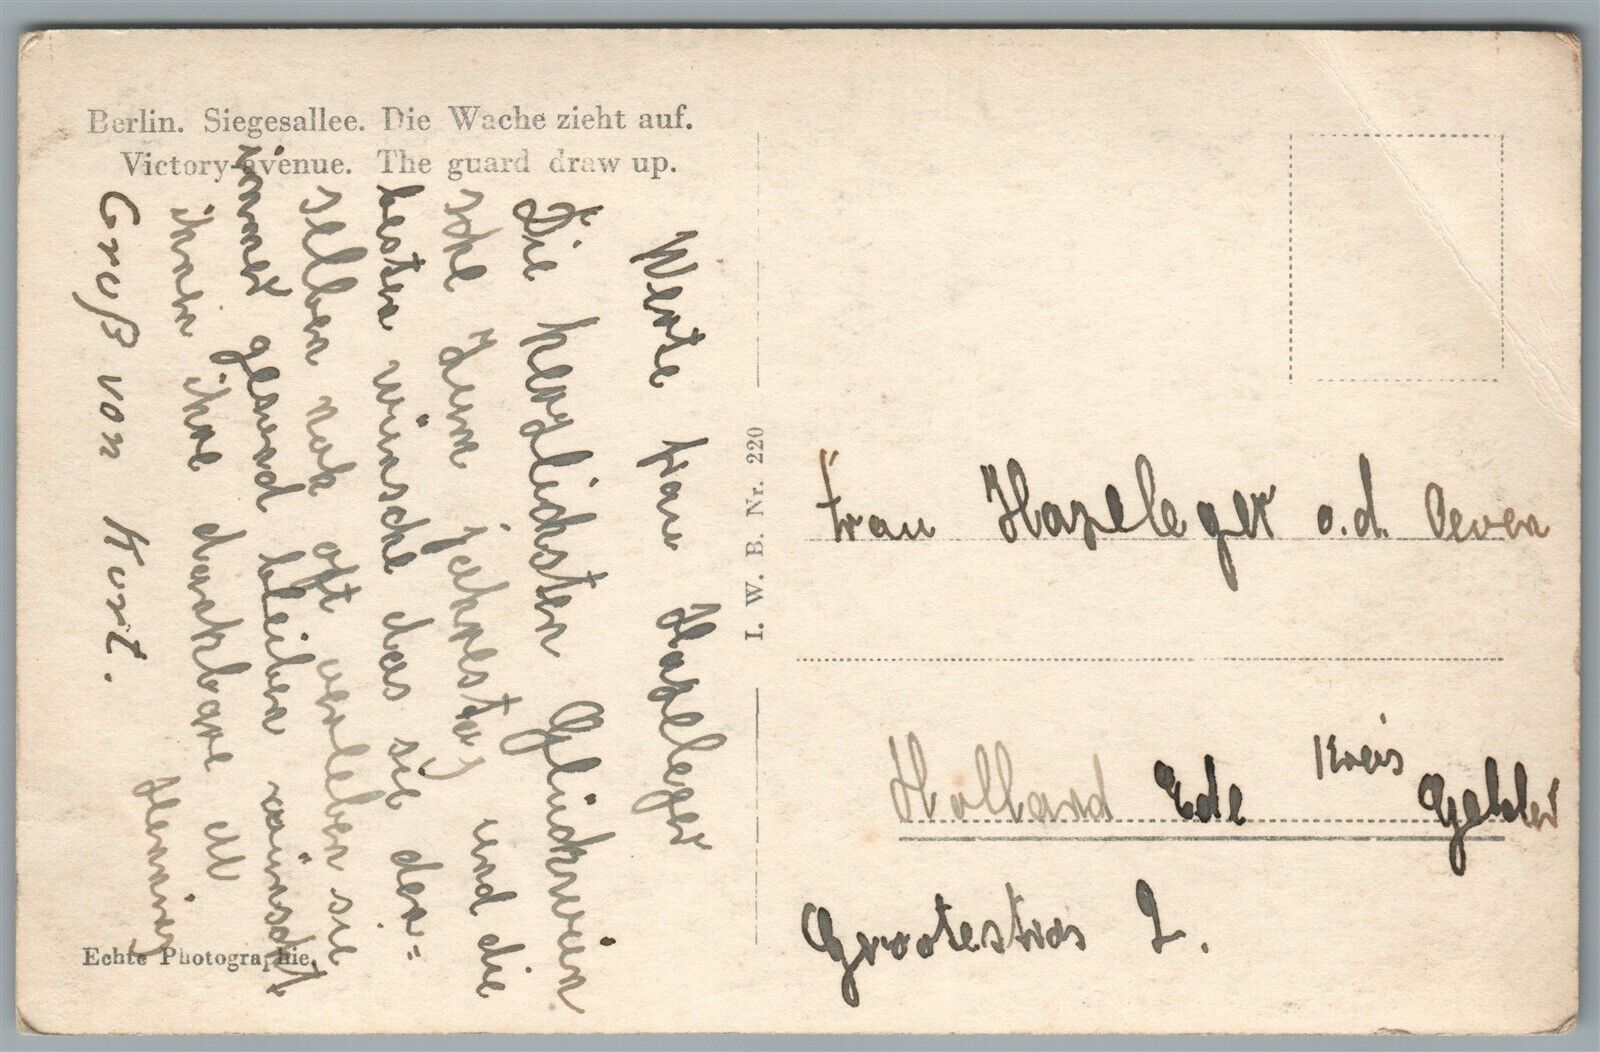 Berlin. Siegesallee. Die Wache zieht auf.
Victory-avenue. The guard draw up.
Werte Frau Hazeleger
Die herzlichsten Glückwün
sche zum jahrestag und die
besten wünsche das sie den=
selben nok oft verleben sie
immer gesund bleiben wünscht
ihnen ihre dankbare
Henning
Gruß von Kurt.
Echte Photographie.
I. W. B. Nr. 220
Frau Hazeleger o.d. Oeven
Holland Ede Kreis Gelder
Grootestras 2.